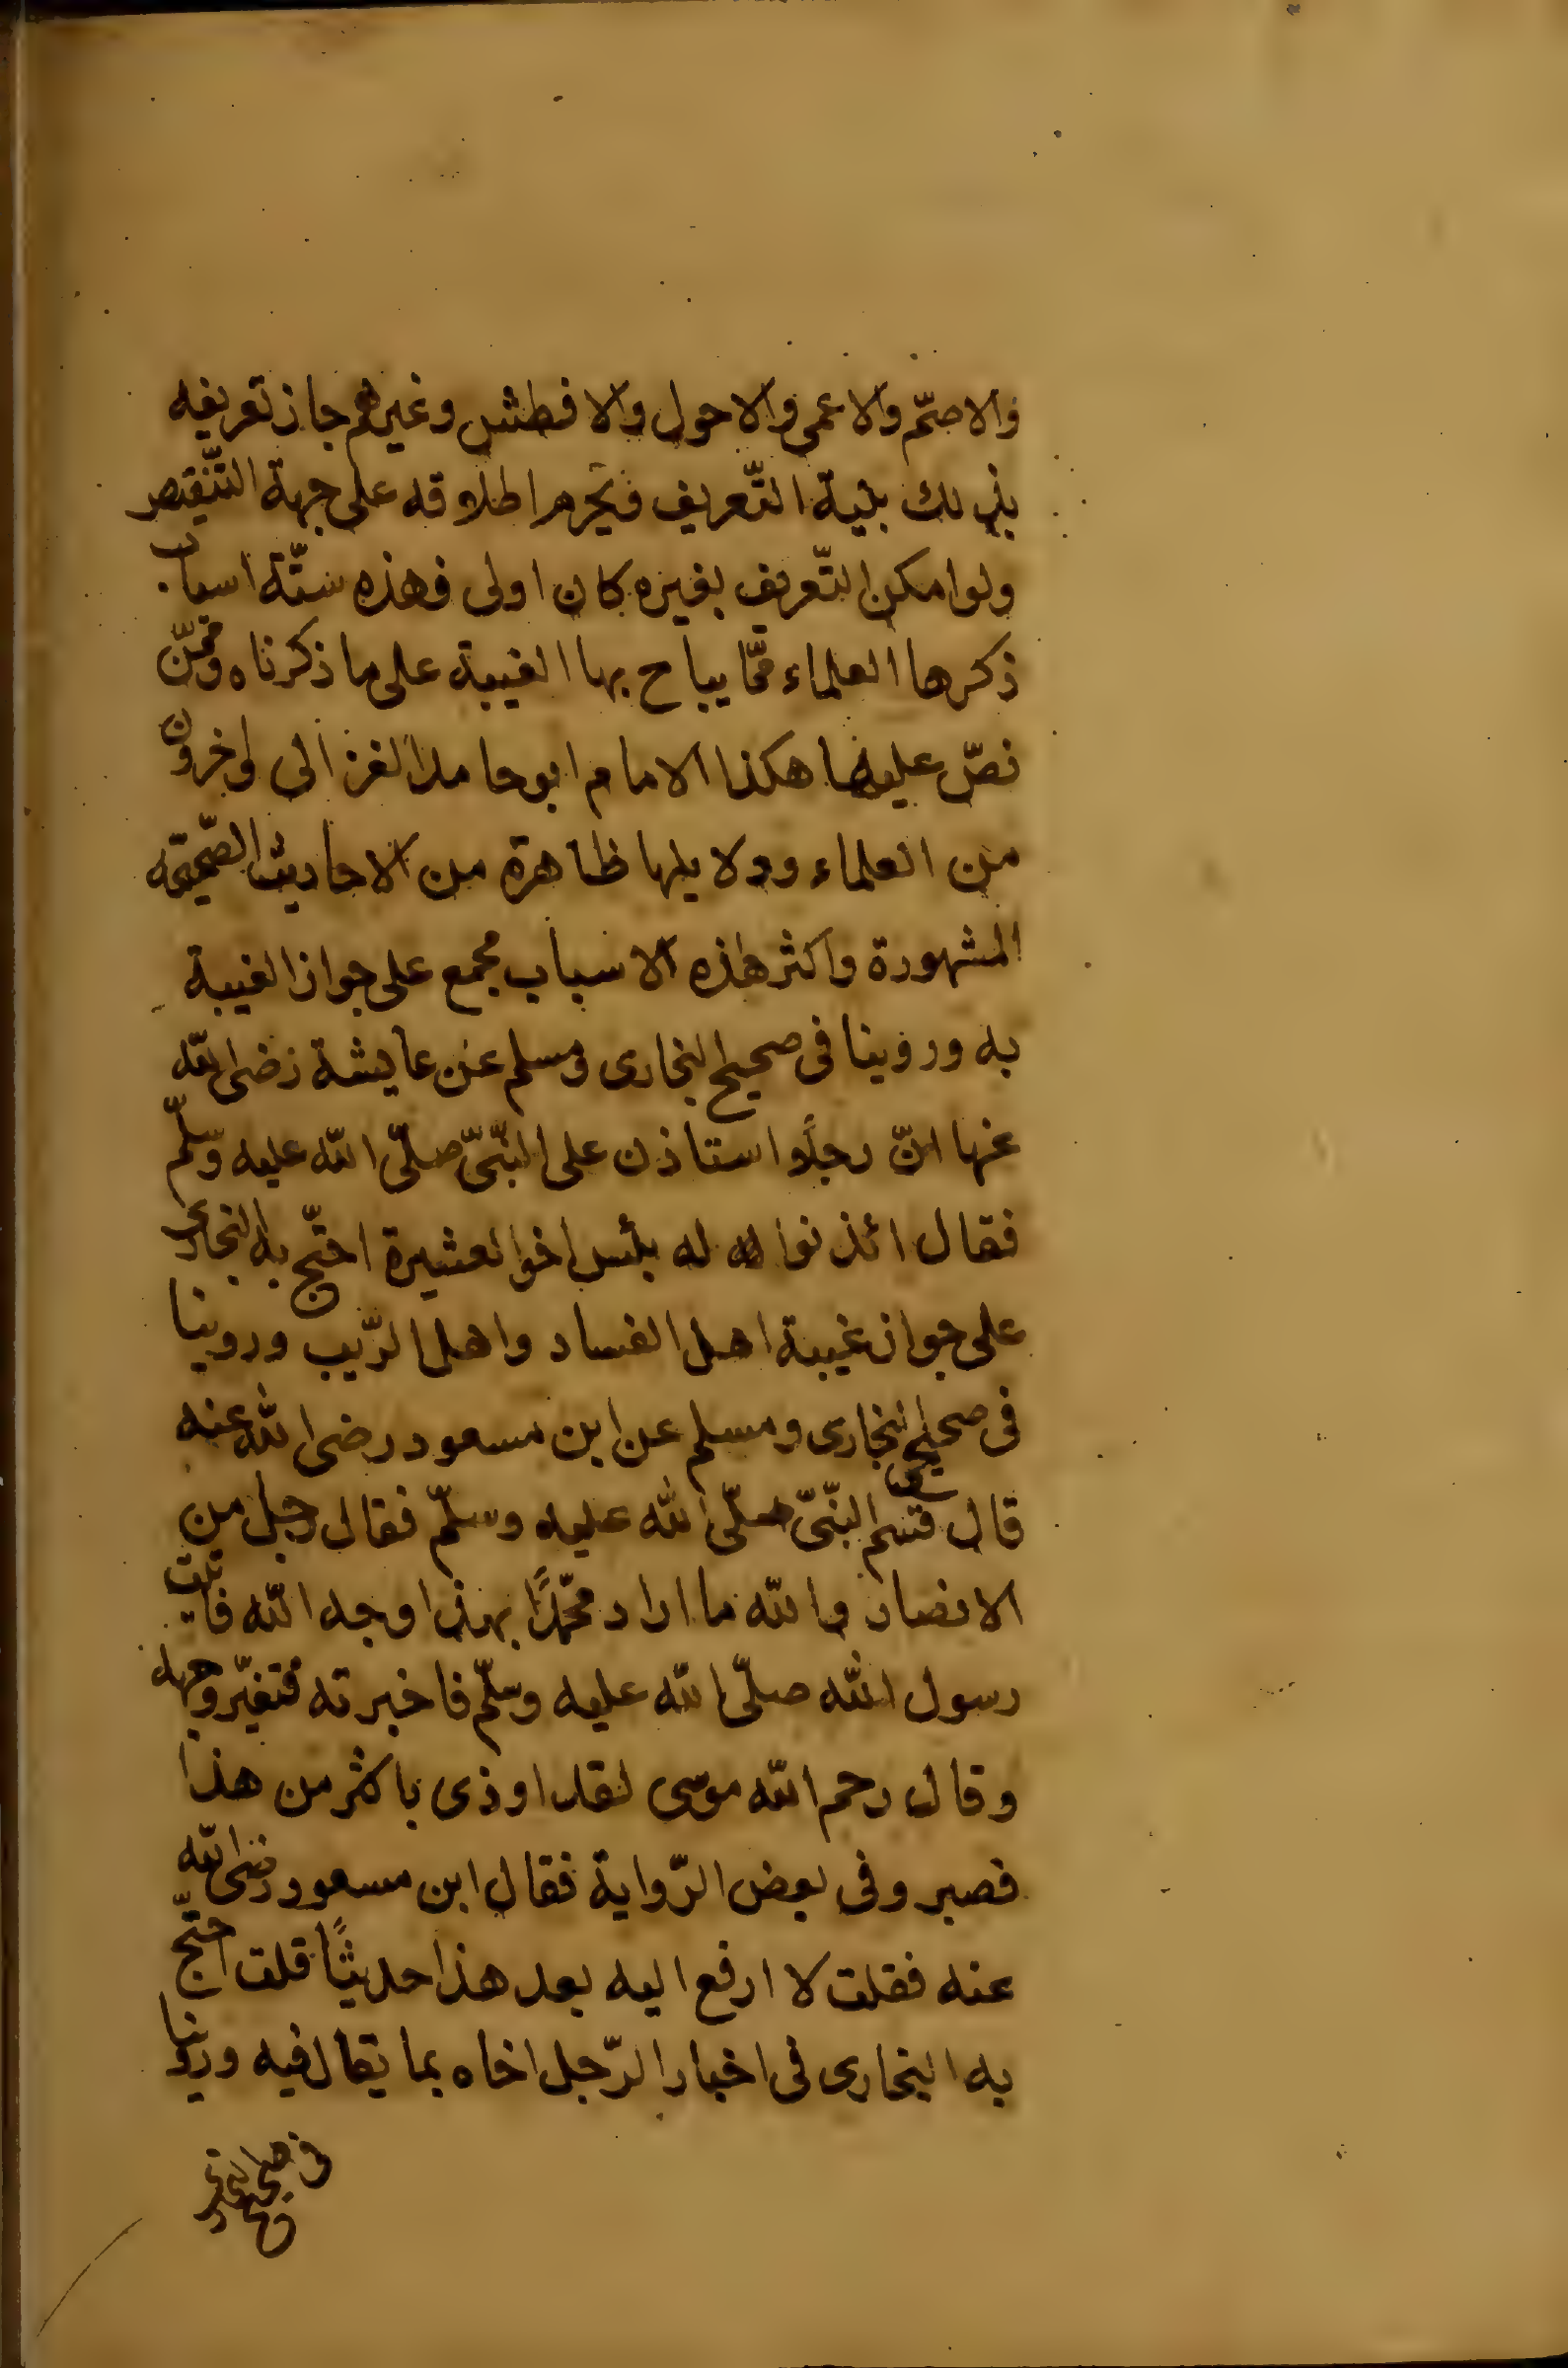 والاصمّ والاعمى والاحول والافطش وغيرهم جاز تعريفه
بذلك بنية التّعريف ويحرم اطلاقه على جهة التّنقيص
ولو امكن التّعريف بغيره كان اولى فهذه ستّة اسباب
ذكرها العلماء ممّا يباح بها الغيبة على ما ذكرناه وممّن
نصّ عليها هكذا الامام ابو حامد الغزالى واخرون
من العلماء ودلايلها ظاهرة من الاحاديث الصّحيحة
المشهورة واكثر هذه الاسباب مجمع على جواز الغيبة
به وروينا فى صحيح البخارى ومسلم عن عايشة رضى الله
عنها انّ رجلًا استاذن على النّبىّ صلّى الله عليه وسلّم
فقال ائذنوا له بئس اخو العشيرة احتجّ به البخارى
على جواز غيبة اهل الفساد واهل الرّيب وروينا
فى صحيح البخارى ومسلم عن ابن مسعود رضى الله عنه
قال قسم النّبىّ صلّى الله عليه وسلّم فقال رجل من
الانصار والله ما اراد محمّدًا بهذا وجه الله فاتيت
رسول الله صلّى الله عليه وسلّم فاخبرته فتغيّر وجهه
وقال رحم الله موسى لقد اوذى باكثر من هذا
فصبر وفى بعض الرّواية فقال ابن مسعود رضى الله
عنه فقلت لا ارفع اليه بعد هذا حديثًا قلت احتجّ
به البخارى فى اخبار الرّجل اخاه بما يقال فيه وروينا
فى صحيح البخارى